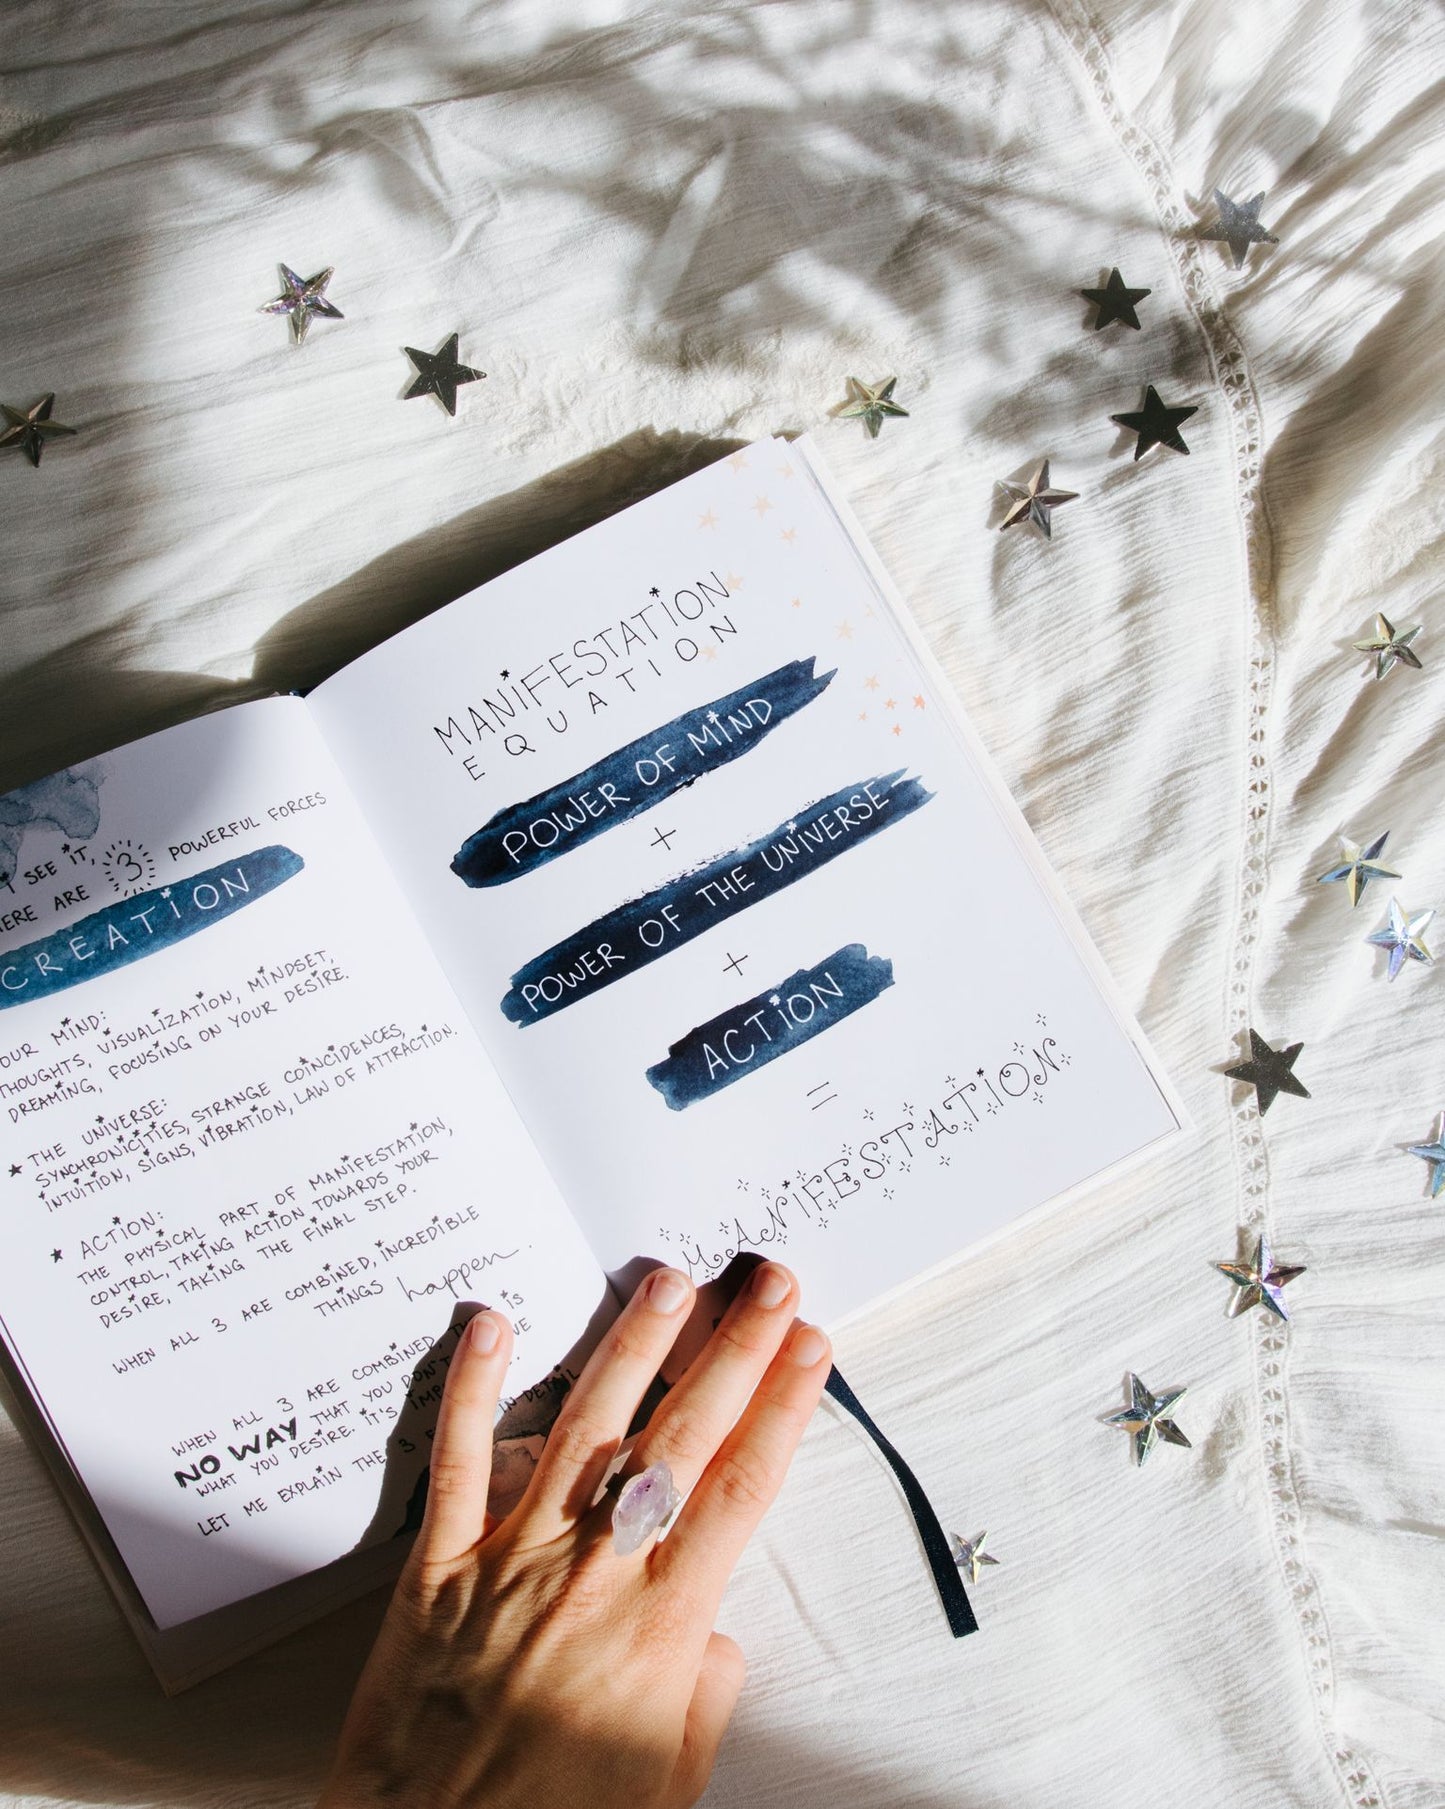 I SEE IT,
ERE ARE 3 POWERFUL FORCES
CREATION
OUR MIND:
THOUGHTS, VISUALIZATION, MINDSET,
DREAMING, FOCUSING ON YOUR DESIRE.
THE UNIVERSE:
SYNCHRONICITIES, STRANGE COINCIDENCES,
INTUITION, SIGNS, VIBRATION, LAW OF ATTRACTION.
ACTION:
THE PHYSICAL PART OF MANIFESTATION,
CONTROL, TAKING ACTION TOWARDS YOUR
DESIRE, TAKING THE FINAL STEP.
WHEN ALL 3 ARE COMBINED, INCREDIBLE
THINGS happen.
WHEN ALL 3 ARE COMBINED, IS
NO WAY THAT YOU DON'T
WHAT YOU DESIRE. IT'S
LET ME EXPLAIN THE 3 IN DETAIL
MANIFESTATION
EQUATION
POWER OF MIND
+
POWER OF THE UNIVERSE
+
ACTION
=
MANIFESTATION